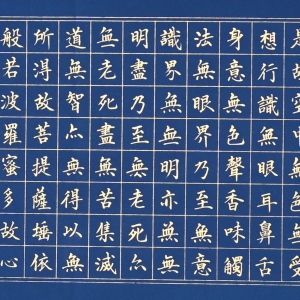 是故空中無色無受
想行識無眼耳鼻舌
身意無色聲香味觸
法無眼界乃至無意
識界無無明亦無無
明盡乃至無老死亦
無老死盡無苦集滅
道無智亦無得以無
所得故菩提薩埵依
般若波羅蜜多故心